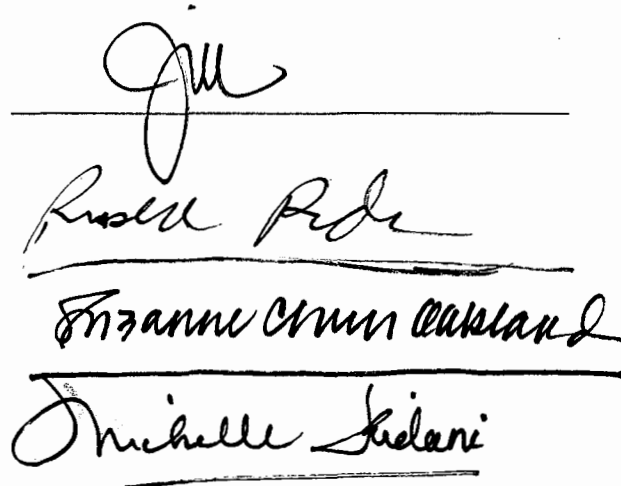 Jill
Russell
Suzanne Chun Oakland
Michelle Kidani